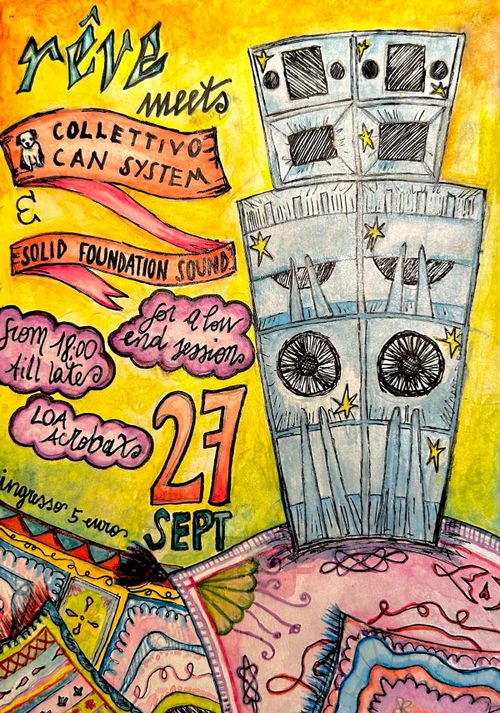 rêve
meets
COLLETTIVO
CAN SYSTEM
&
SOLID FOUNDATION SOUND
for a low
end session
from 18:00
till late
LOA
AcrobaX
27
SEPT
ingresso 5 euro